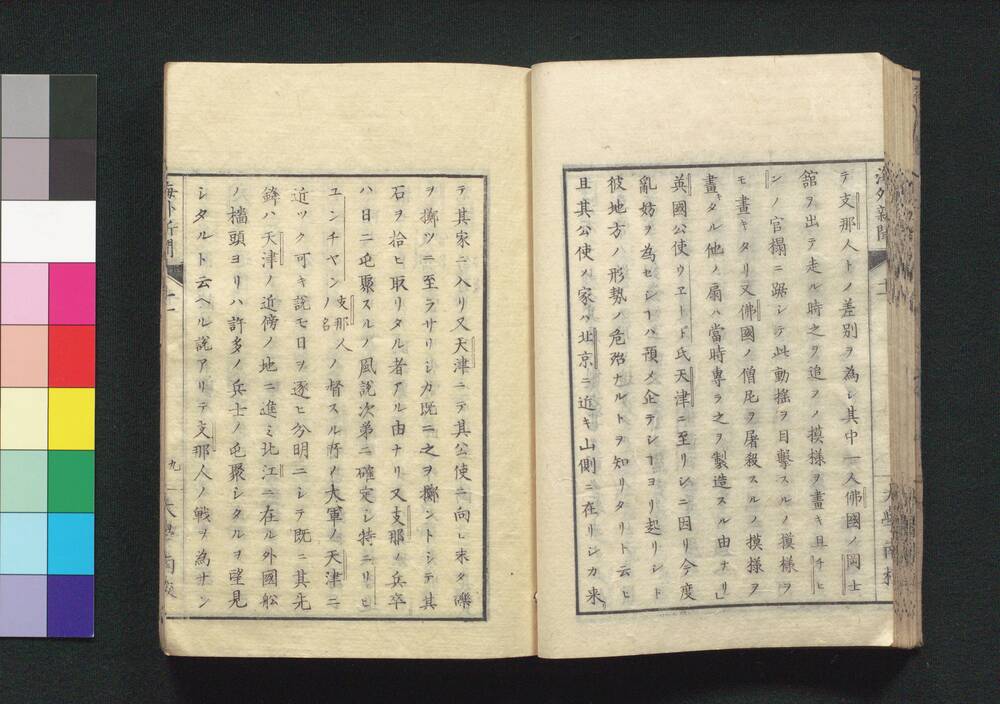 海外新聞
テ支那人トノ差別ヲ為シ其中一人佛國ノ岡士
館ヲ出テ走ル時之ヲ追フノ摸様ヲ畫キ且チヒ
ンノ官榻ニ踞シテ此動揺ヲ目擊スルノ摸様ヲ
モ畫キタリ又佛國ノ僧尼ヲ屠殺スルノ摸様ヲ
畫キタル他ノ扇ハ當時專ラ之ヲ製造スル由ナリ」
英國公使ウエード氏天津ニ至リシニ因リ今度
亂妨ヲ為セシヿハ預メ企テシヿヨリ起リシト
彼地方ノ形勢ノ危殆ナルトヲ知リタリト云ヒ
且其公使ノ家ハ北京ニ近キ山側ニ在リシカ米
テ其家ニ入リ又天津ニテ其公使ニ向ヒ未タ礫
ヲ擲ツニ至ラサリシカ既ニ之ヲ擲ントシテ其
石ヲ拾ヒ取リタル者アル由ナリ又支那ノ兵卒
ハ日ニ屯聚スルノ風說次第ニ確定シ特ニリヒ
ユンチヤン支那人ノ名ノ督スル所ノ大軍ノ天津ニ
近ツク可キ說モ日ヲ逐ヒ分明ニシテ既ニ其先
鋒ハ天津ノ近傍ノ地ニ進ミ北江ニ在ル外國舩
ノ檣頭ヨリハ許多ノ兵士ノ屯聚シタルヲ望見
シタルト云ヘル說アリテ支那人ノ戰ヲ為ナン
海外新聞
九
大學南校